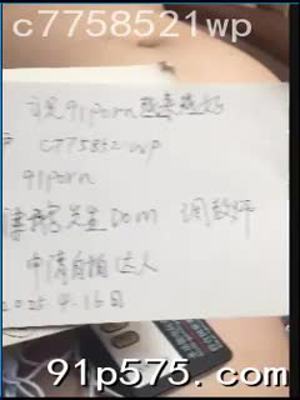 c7758521wp
祝91porn越来越好
c7758521wp
91porn
先生Dom 调教
申请自拍达人
2025.4.16日
91p575.com